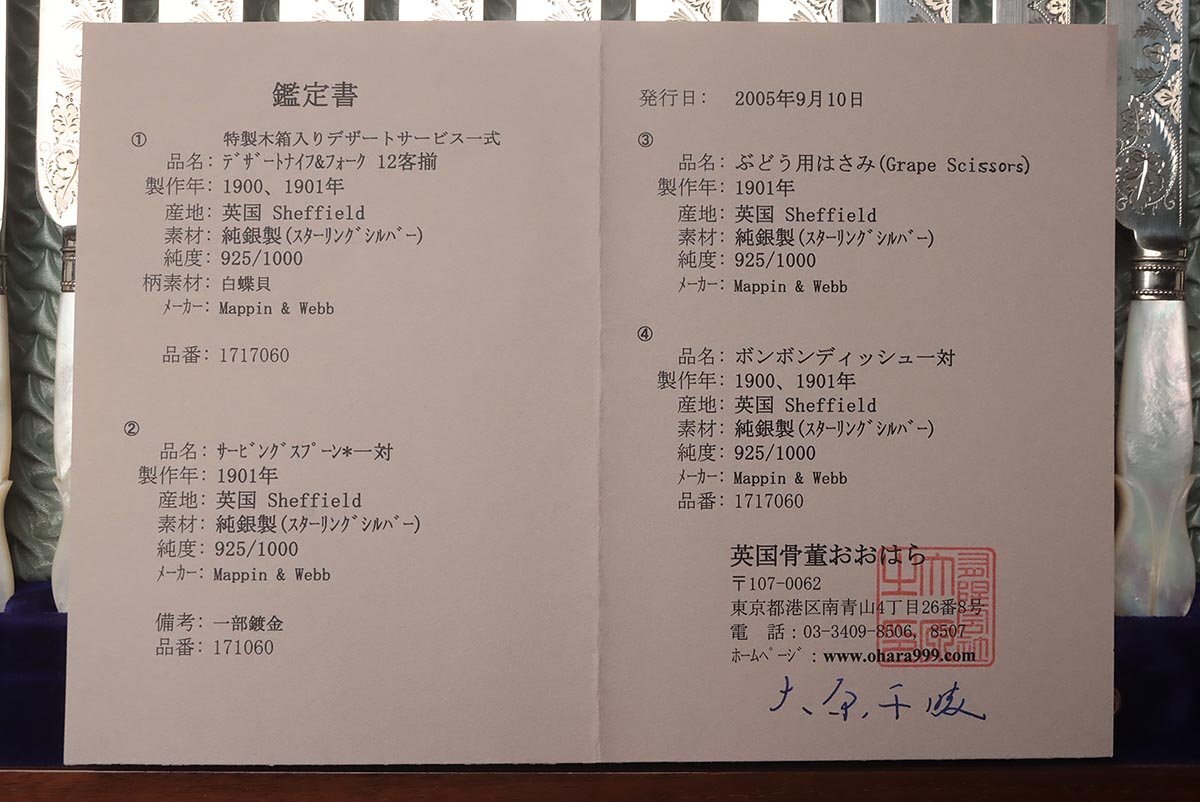 鑑定書
① 特製木箱入りデザートサービス一式
品名：ﾃﾞｻﾞｰﾄﾅｲﾌ&ﾌｫｰｸ 12客揃
製作年：1900、1901年
産地：英国 Sheffield
素材：純銀製(ｽﾀｰﾘﾝｸﾞｼﾙﾊﾞｰ)
純度：925/1000
柄素材：白蝶貝
ﾒｰｶｰ：Mappin & Webb
品番：1717060
②
品名：ｻｰﾋﾞﾝｸﾞｽﾌﾟｰﾝ*一対
製作年：1901年
産地：英国 Sheffield
素材：純銀製(ｽﾀｰﾘﾝｸﾞｼﾙﾊﾞｰ)
純度：925/1000
ﾒｰｶｰ：Mappin & Webb
備考：一部鍍金
品番：171060
発行日： 2005年9月10日
③
品名：ぶどう用はさみ(Grape Scissors)
製作年：1901年
産地：英国 Sheffield
素材：純銀製(ｽﾀｰﾘﾝｸﾞｼﾙﾊﾞｰ)
純度：925/1000
ﾒｰｶｰ：Mappin & Webb
④
品名：ボンボンディッシュ一対
製作年：1900、1901年
産地：英国 Sheffield
素材：純銀製(ｽﾀｰﾘﾝｸﾞｼﾙﾊﾞｰ)
純度：925/1000
ﾒｰｶｰ：Mappin & Webb
品番：1717060
英国骨董おおはら
〒107-0062
東京都港区南青山4丁目26番8号
電 話：03-3409-8506, 8507
ﾎｰﾑﾍﾟｰｼﾞ：www.ohara999.com
大原千